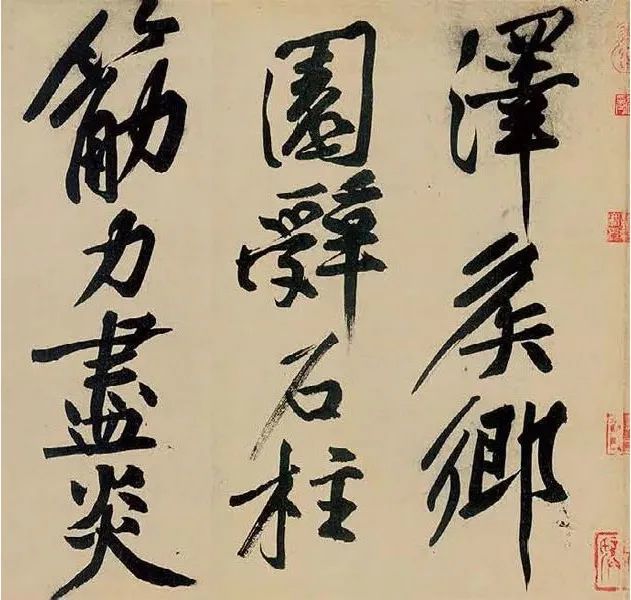 澤侯鄉
園辭石柱
筋力盡炎